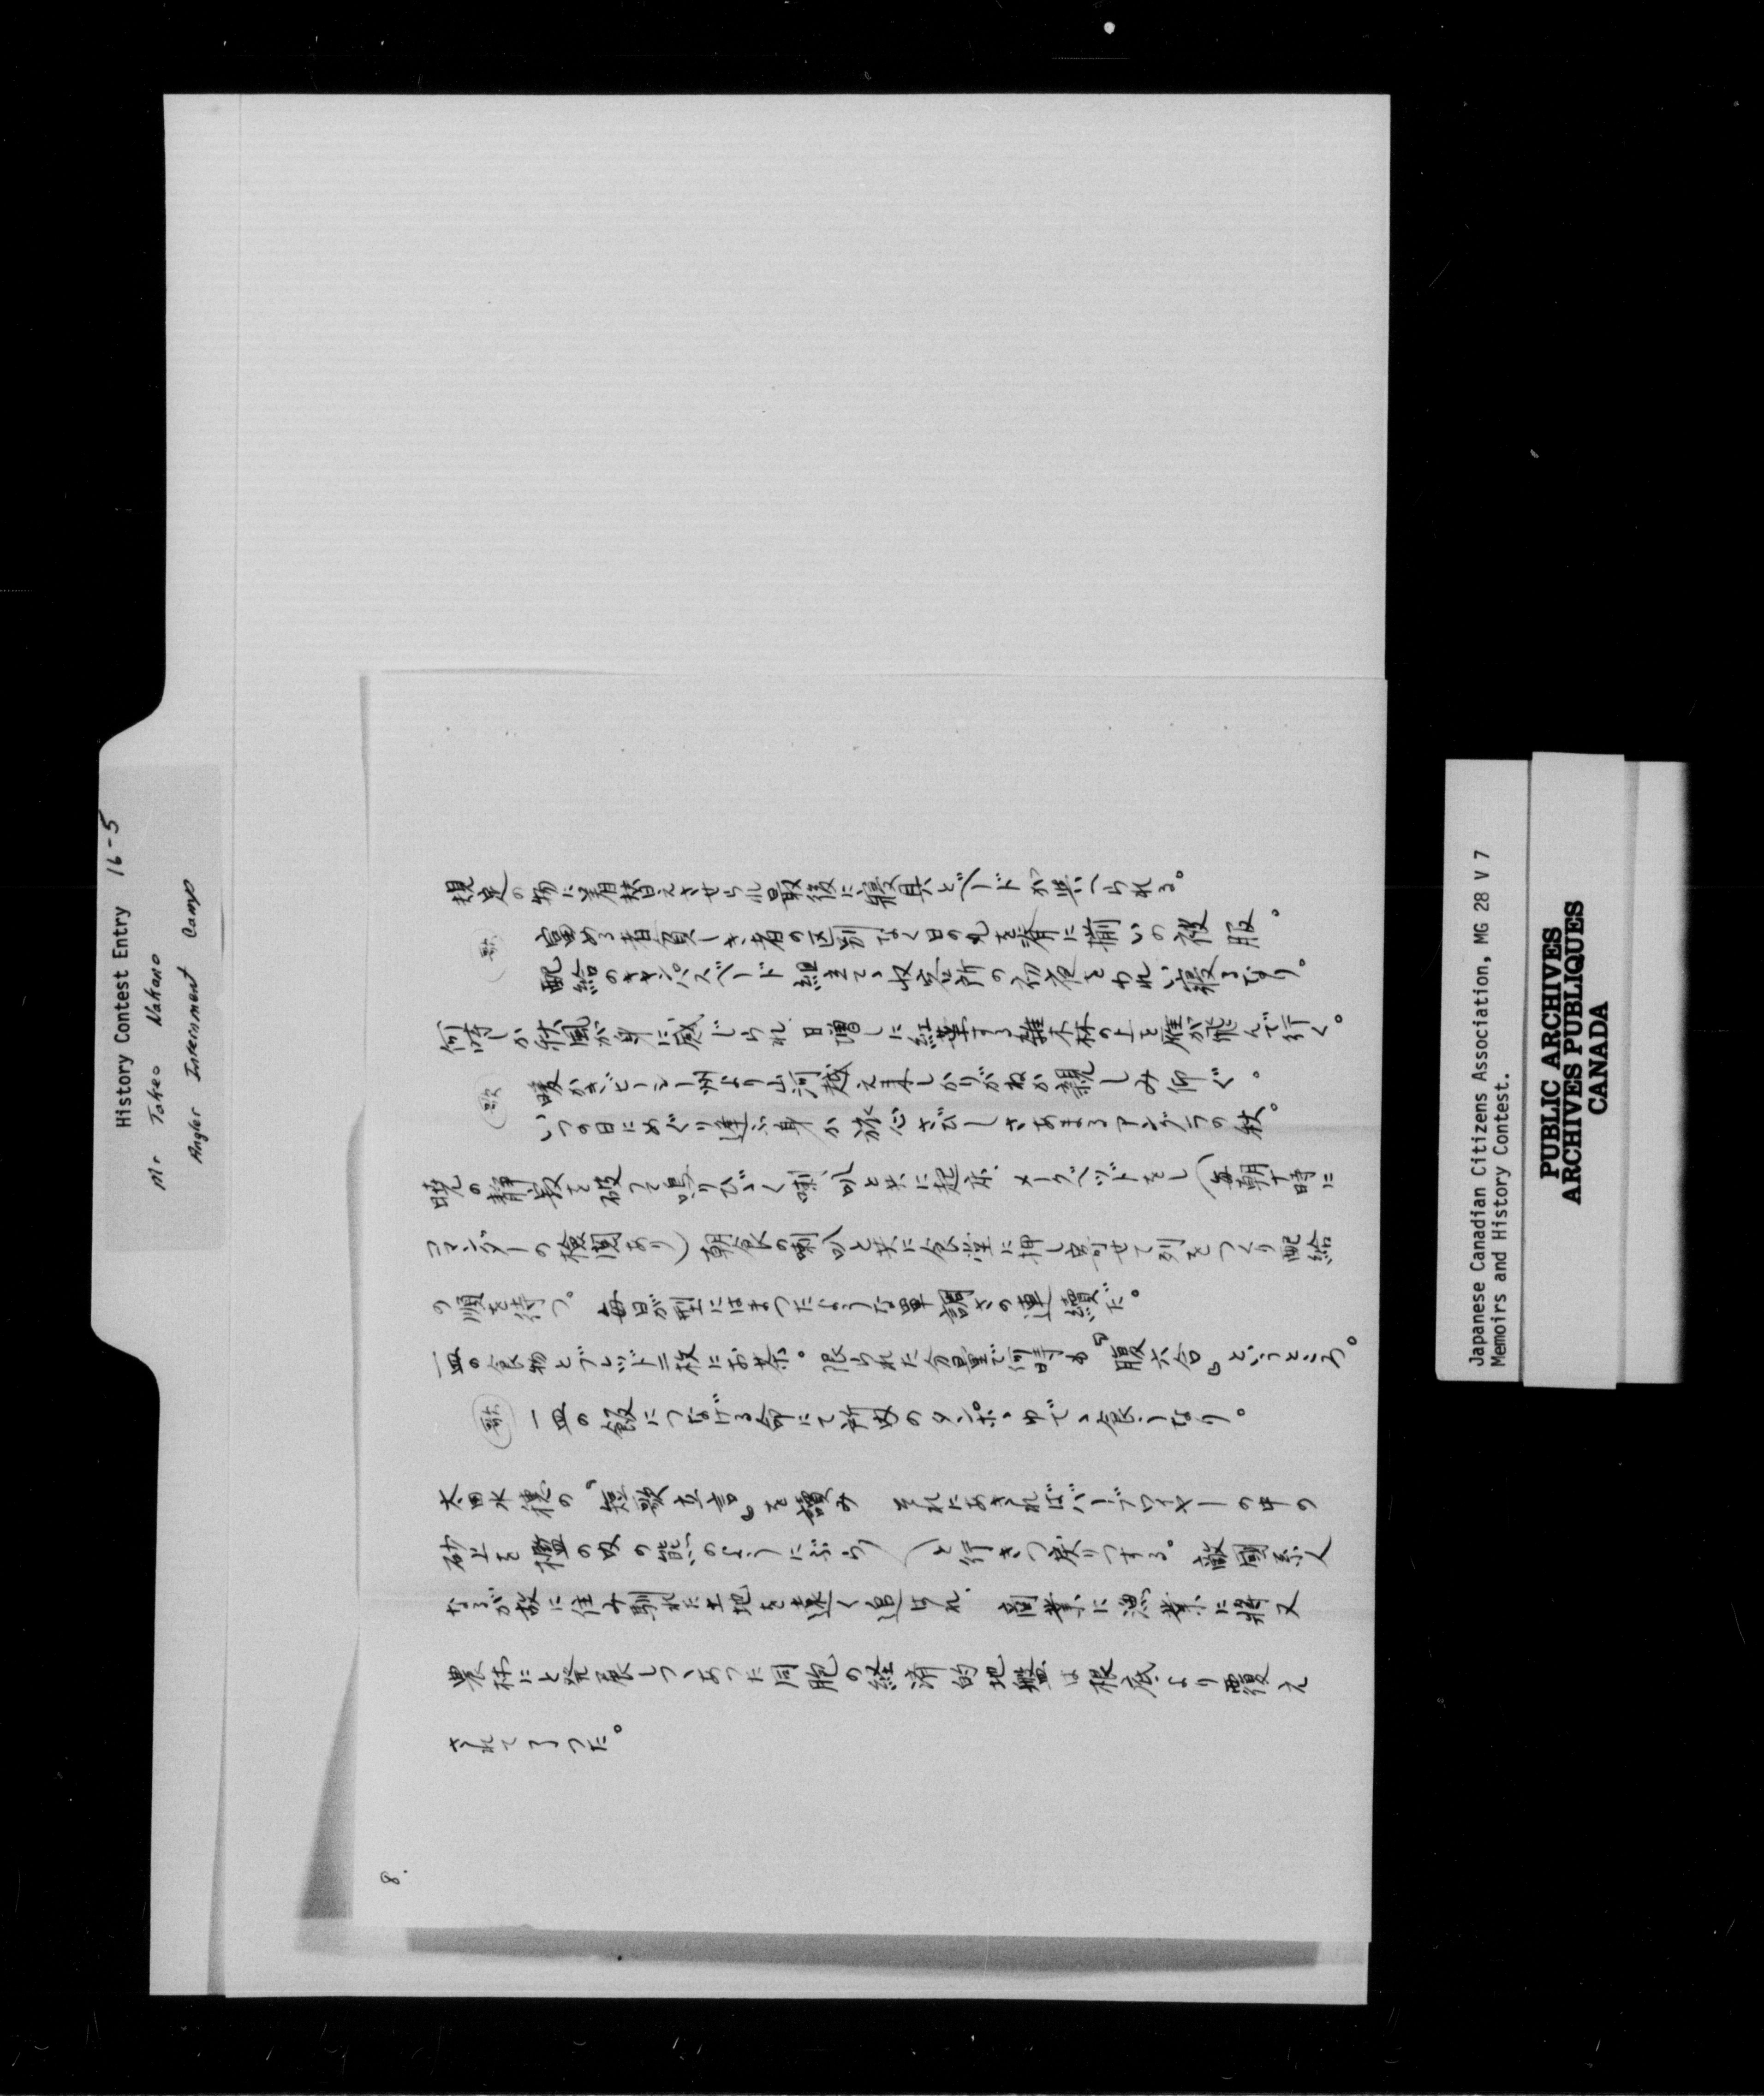 History Contest Entry 16-5
Mr. Takeo Nakano
Angler Internment Camp
規定の物に着替えさせられ最後に寝具とベードが与へられる。
(歌) 富める者貧しき者の区別なく日の丸を背に揃いの被服。
配給のキャンバスベード組立てゝ収容所の初夜をわれ寝るなり。
何時しか秋風が身に感じられ日増しに紅葉する雑木林の上を雁が飛んで行く。
(歌) 暖かきビーシー州より山河越え来しかりがねか親しみ仰ぐ。
いつの日にめぐり逢ふ身か旅心さびしさあまるアングラの秋。
暁の静寂を破つて鳴りひゞく喇叭と共に起床、メークベッドをし(毎朝十時に
コマンダーの検閲あり)朝食の喇叭と共に食堂に押し寄せて列をつくり配給
の順を待つ。毎日が型にはまつたような単調さの連續だ。
一皿の食物とブレッド二枚にお茶。限られた分量で何時も『腹六合』というところ。
(歌) 一皿の飯につなげる命にて新政のタンポゝゆでゝ食うなり。
太田水穂の『短歌立言』を讀み それにあきればバーブワイヤーの中の
砂上を檻の及の熊のようにぶら〱と行きつ戻りつする。敵國系人
なるが故に住み馴れた土地を遠く追はれ、商業に漁業に將又
農林にと発展しつゝあつた同胞の経済的地盤は根底より覆え
されて了つた。
8.
Japanese Canadian Citizens Association, MG 28 V 7
Memoirs and History Contest.
PUBLIC ARCHIVES
ARCHIVES PUBLIQUES
CANADA